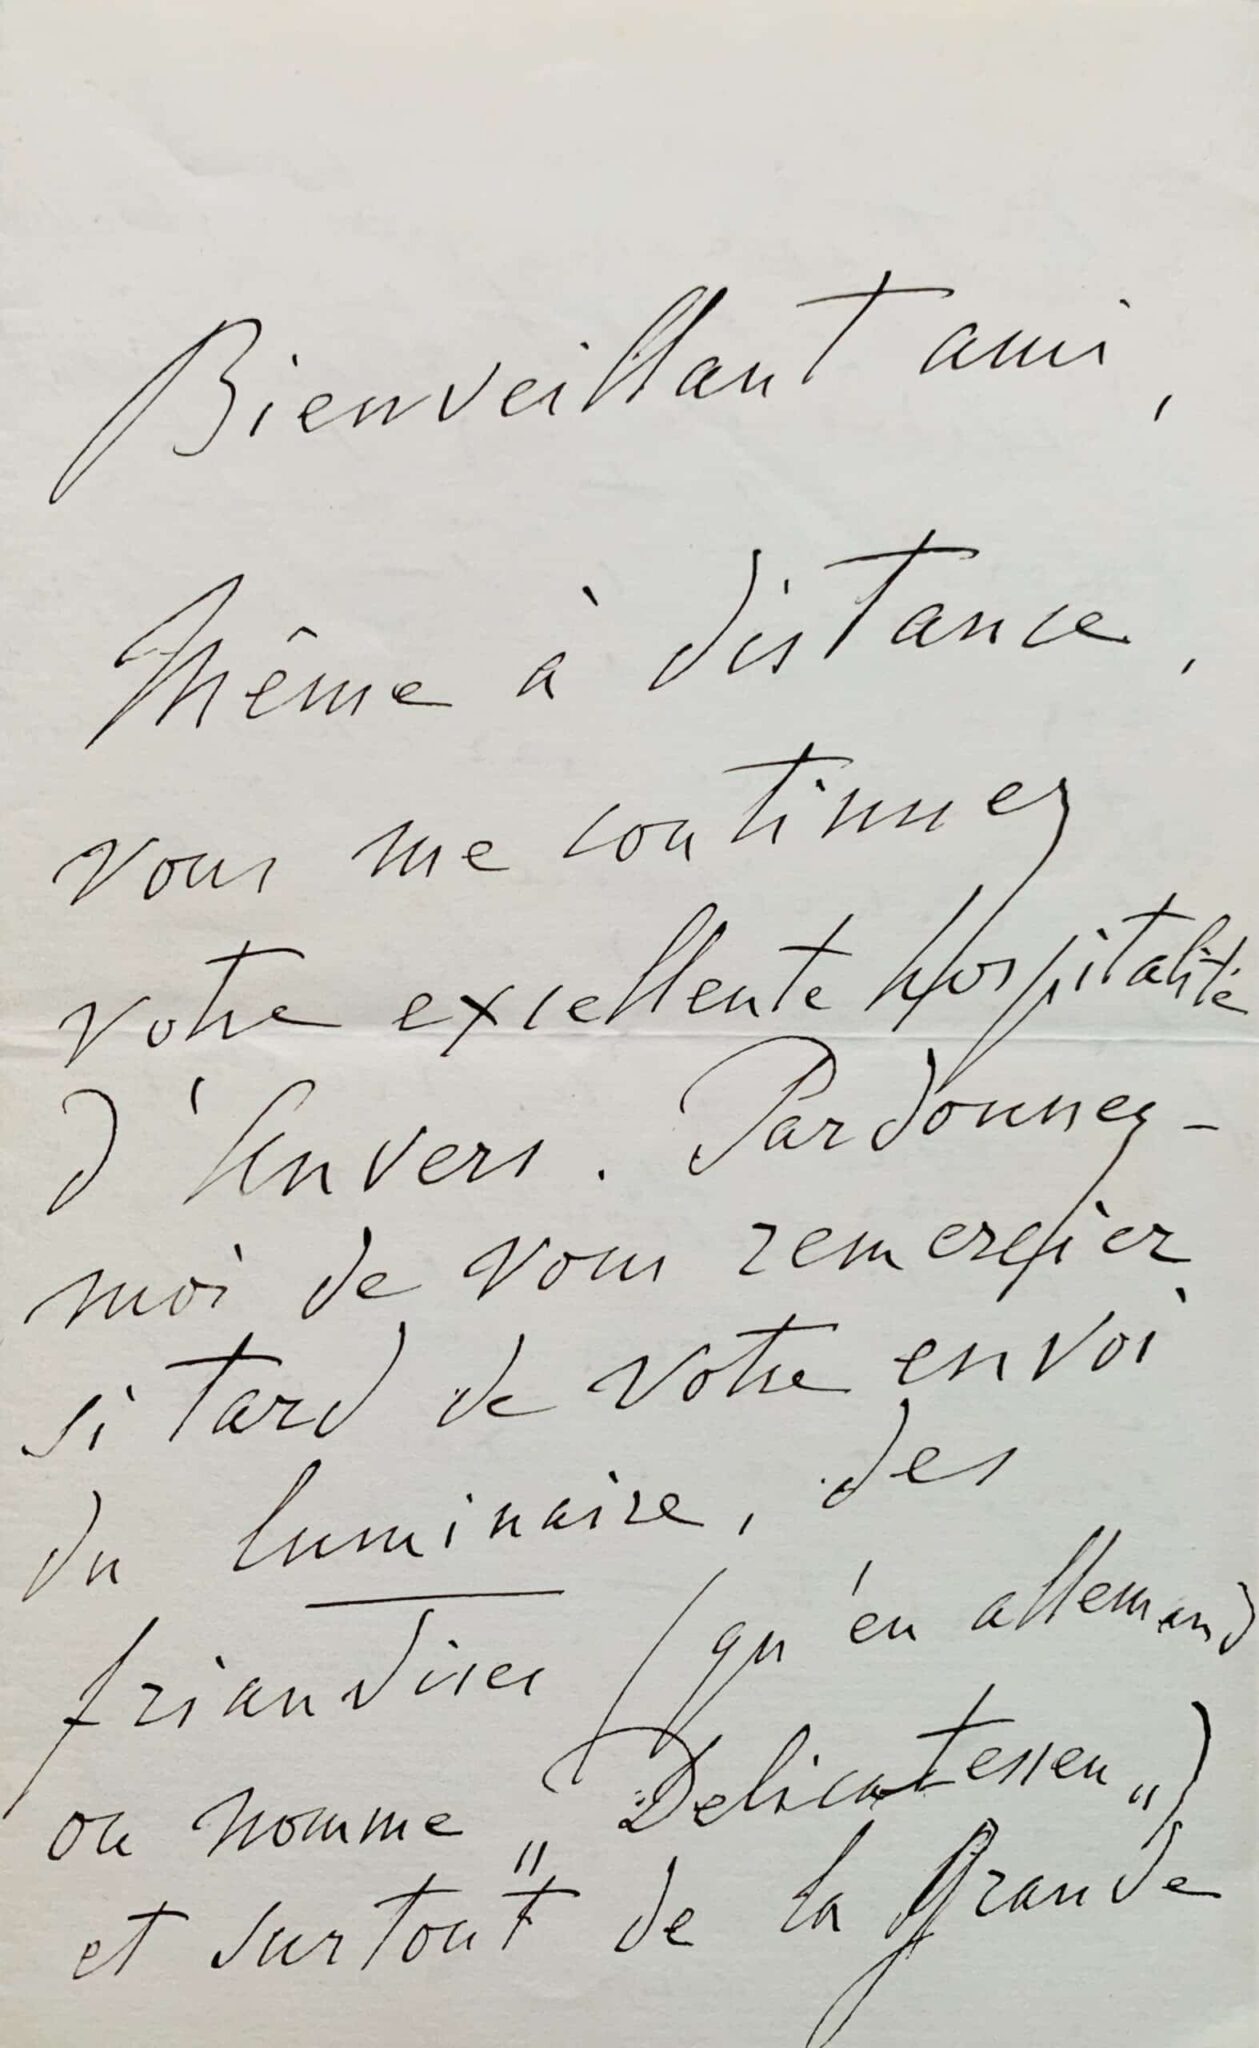 Bienveillant ami,
Même à distance,
vous me continuez
votre excellente hospitalité
d'Anvers. Pardonnez-
moi de vous remercier
si tard de votre envoi
du luminaire, des
friandises (qu'en allemand
on nomme „Delicatessen„)
et surtout de la grande